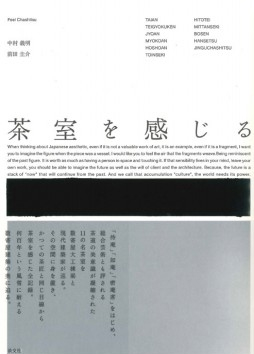 Feel Chashitsu
中村 義明
前田 圭介
TAIAN
TEIGYOKUKEN
JYOAN
MYOKOAN
HOSHOAN
TOINSEKI
HITOTEI
MITTANSEKI
BOSEN
HANSETSU
JINGUCHASHITSU
茶室を感じる
When thinking about Japanese aesthetic, even if it is not a valuable work of art, it is an example, even if it is a fragment, I want
you to imagine the figure when the piece was a vessel. I would like you to feel the air that the fragments weave. Being reminiscent
of the past figure. It is worth as much as having a person in space and touching it. If that sensibility lives in your mind, leave your
own work, you should be able to imagine the future as well as the will of client and the architecture. Because, the future is a
stack of "now" that will continue from the past. And we call that accumulation "culture". the world needs its power.
「待庵」、「如庵」、「密庵席」をはじめ、
総合芸術とも評される
茶道の美意識が凝縮された
11の名茶室を
数寄屋大工棟梁と
現代建築家が巡る。
その空間に身を置き、
かつての茶匠と同じ目線から
茶室を感じた全記録。
何百年という風雪に耐える
数寄屋建築の奥に迫る。
淡交社